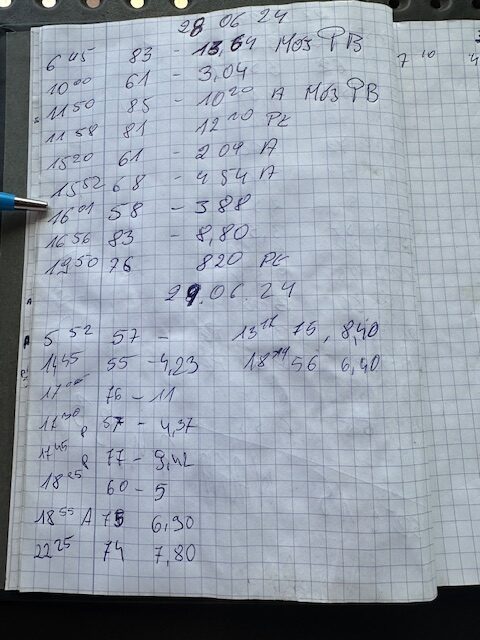 28 06 24
6 45 83 - 13,64 MÓJ PB
10 00 61 - 3,04
11 50 85 - 10 20 A MÓJ PB
11 58 81 12 20 PK
15 20 61 - 2 04 A
15 52 68 - 4 54 A
16 01 58 - 3 88
16 56 83 - 8,80
19 50 76 820 PK
29.06.24
5 52 57 - 13 12 75, 8,40
14 45 55 - 4,23 18 14 56 6,40
17 00 76 - 11
17 30 57 - 4,37
17 45 77 - 9,42
18 25 60 - 5
18 55 A 75 6,90
22 25 74 7,80
7 10